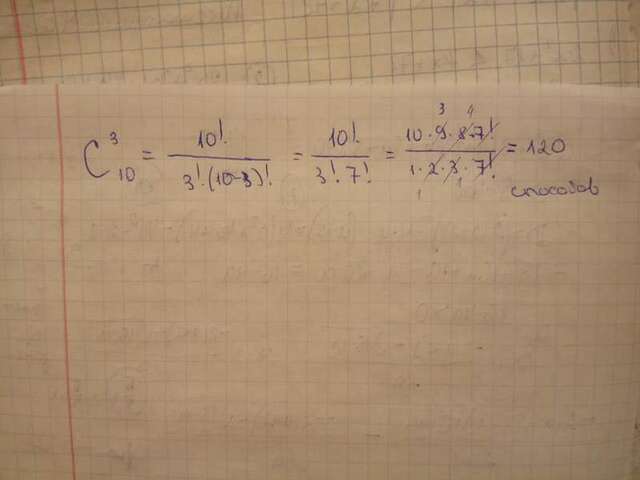 C₁₀³ = 10! / 3!(10-3)! = 10! / 3!·7! = 10·9·8·7! / 1·2·3·7! = 120
способов